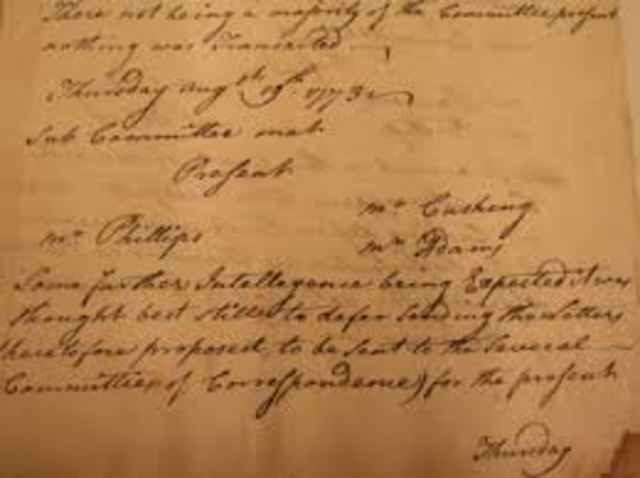 There not being a majority of the Committee present
nothing was Transacted
Thursday Augst. 19th. 1773
Sub Committee met
Present
Mr. Cushing
Mr Phillips
Mr Adams
Some further Intellegence being Expected it was
thought best still to defer Sending the Letters
heretofore proposed to be sent to the Several
Committees of Correspondence) for the present
Thursday